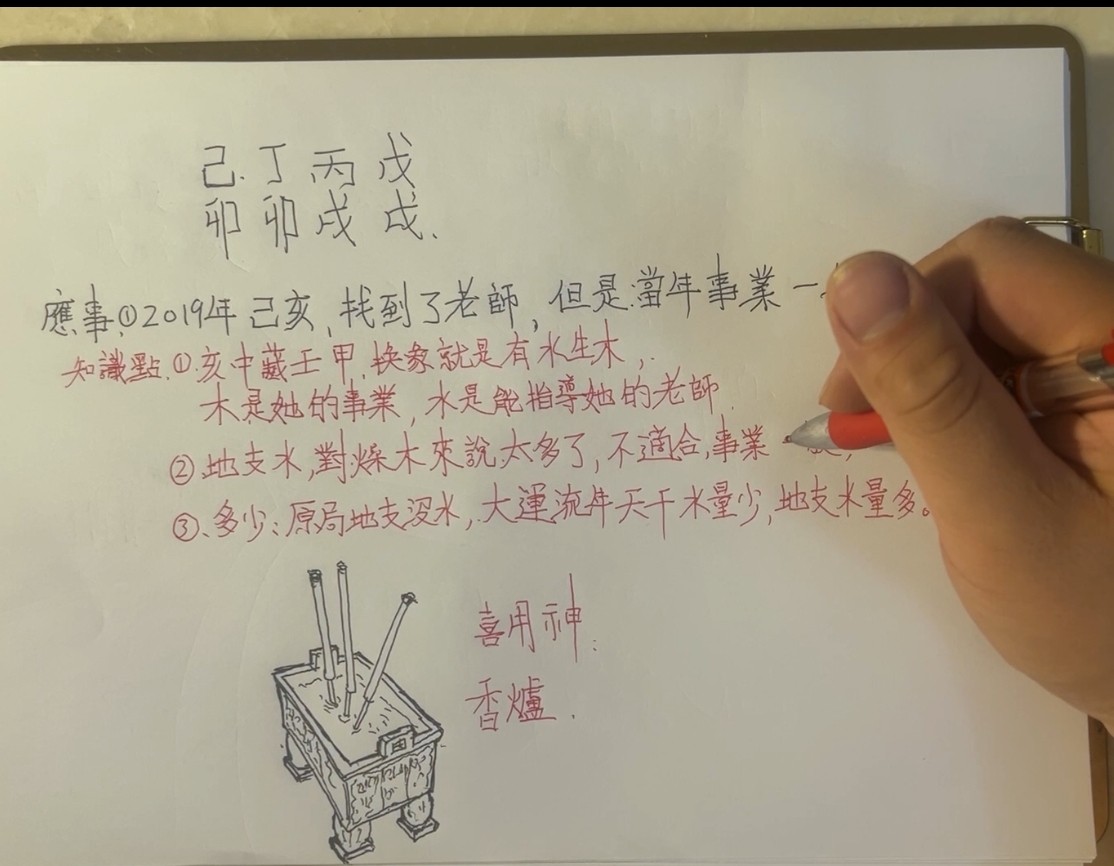 己.丁丙戊
卯卯戌戌.
應事.①2019年己亥,找到了老師,但是.當年事業一
知識點.①.亥中藏壬甲.換象就是有水生木,.
木是她的事業,水是能指導她的老師.
②地支水,對燥木來說.太多了,不適合,事業
③、多少:原局地支沒水,大運流年天干水量少,地支水量多。
喜用神:
香爐.